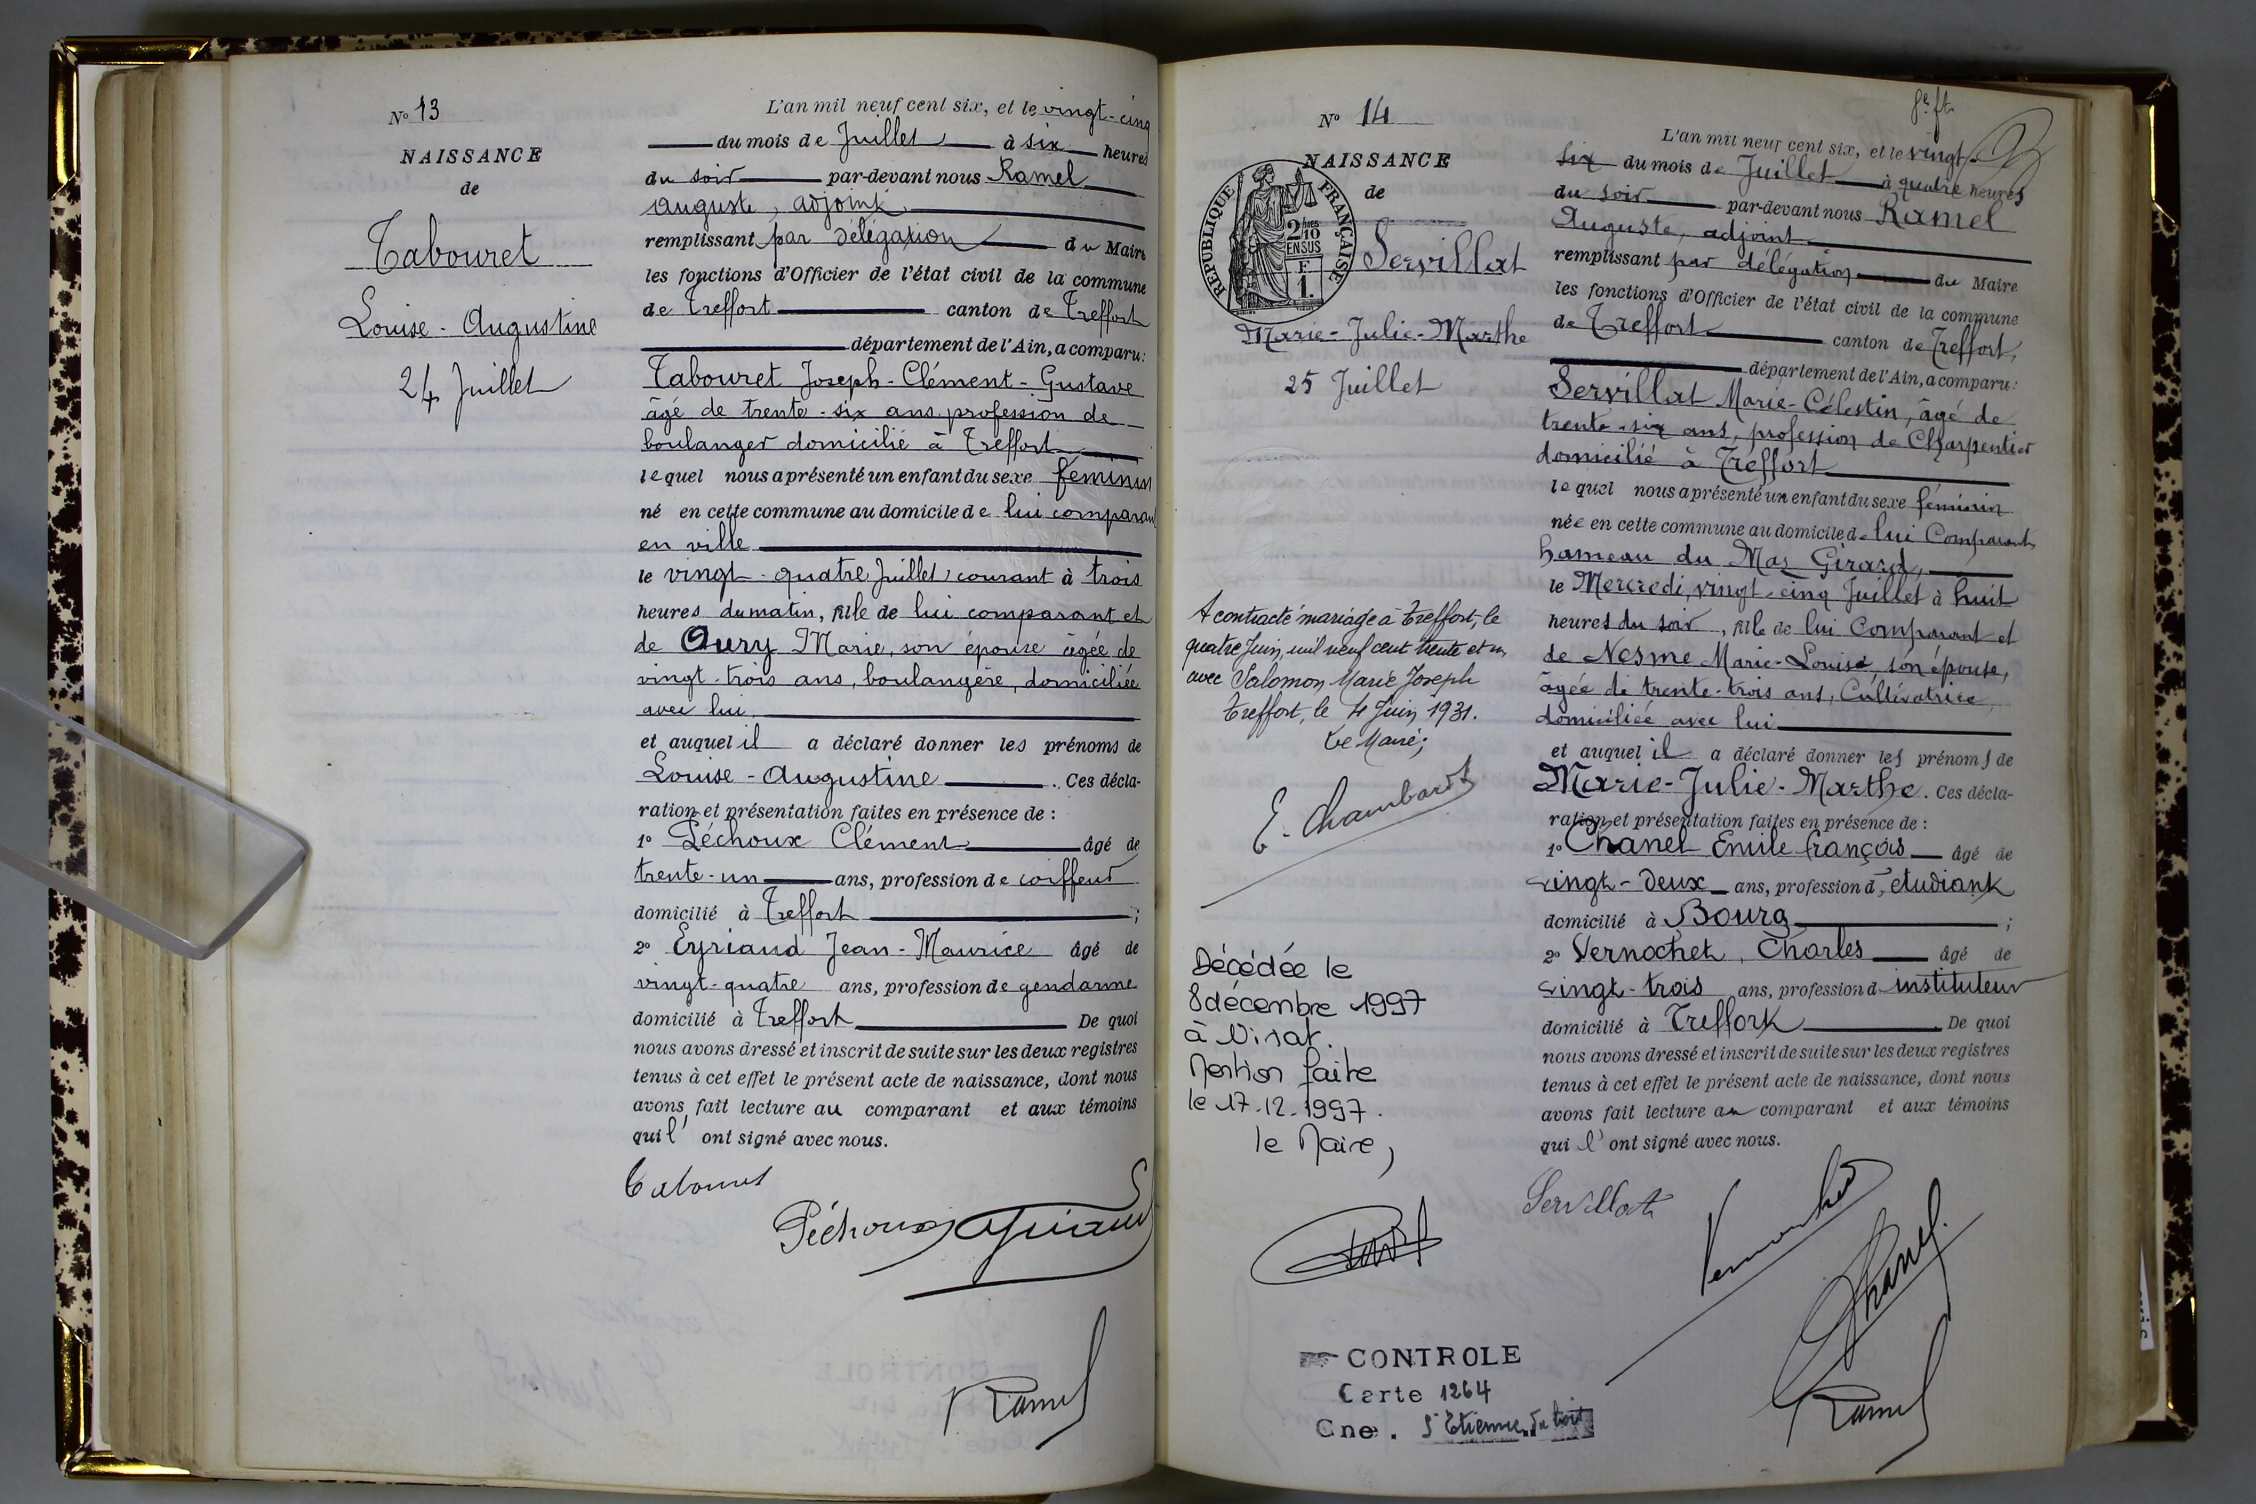 N° 13
NAISSANCE
de
Tabouret
Louise-Augustine
24 Juillet
L'an mil neuf cent six, et le vingt-cinq
du mois de Juillet à six heures
du soir par-devant nous Ramel
Auguste, adjoint
remplissant par délégation du Maire
les fonctions d'Officier de l'état civil de la commune
de Treffort canton de Treffort
département de l'Ain, a comparu:
Tabouret Joseph-Clément-Gustave
âgé de trente-six ans profession de
boulanger domicilié à Treffort
lequel nous a présenté un enfant du sexe féminin
né en cette commune au domicile de lui comparant
en ville
le vingt-quatre Juillet courant à trois
heures du matin, fille de lui comparant et
de Oury Marie, son épouse âgée de
vingt-trois ans, boulangère, domiciliée
avec lui,
et auquel il a déclaré donner les prénoms de
Louise-Augustine. Ces décla-
ration et présentation faites en présence de :
1° Péchoux Clément âgé de
trente-un ans, profession de coiffeur
domicilié à Treffort ;
2° Eyriaud Jean-Maurice âgé de
vingt-quatre ans, profession de gendarme
domicilié à Treffort De quoi
nous avons dressé et inscrit de suite sur les deux registres
tenus à cet effet le présent acte de naissance, dont nous
avons fait lecture au comparant et aux témoins
qui l'ont signé avec nous.
Tabouret
Péchoux Eyriaud
Ramel
N° 14
NAISSANCE
de
RÉPUBLIQUE FRANÇAISE
2/10
EN SUS
F.
1.
Servillat
Marie-Julie-Marthe
25 Juillet
A contracté mariage à Treffort, le
quatre Juin, mil neuf cent trente et un
avec Salomon Marie Joseph
Treffort, le 4 Juin 1931.
Le Maire;
E. Chambard
Décédée le
8 décembre 1997
à Viriat.
Mention faite
le 17.12.1997.
le Maire,
CONTROLE
Carte 1264
Cne. St Etienne du bois
8e ft.
L'an mil neuf cent six, et le vingt-
six du mois de Juillet à quatre heures
du soir par-devant nous Ramel
Auguste, adjoint
remplissant par délégation du Maire
les fonctions d'Officier de l'état civil de la commune
de Treffort canton de Treffort,
département de l'Ain, a comparu:
Servillat Marie-Célestin, âgé de
trente-six ans, profession de Charpentier
domicilié à Treffort
lequel nous a présenté un enfant du sexe féminin
née en cette commune au domicile de lui Comparant
hameau du Mas Girard,
le Mercredi, vingt-cinq Juillet à huit
heures du soir, fille de lui Comparant et
de Nesme Marie-Louise, son épouse,
âgée de trente-trois ans, Cultivatrice,
domiciliée avec lui
et auquel il a déclaré donner les prénoms de
Marie-Julie-Marthe. Ces décla-
ration et présentation faites en présence de :
1° Chanel Emile François âgé de
vingt-deux ans, profession d'étudiant
domicilié à Bourg ;
2° Vernochet, Charles âgé de
vingt-trois ans, profession d'instituteur
domicilié à Treffort De quoi
nous avons dressé et inscrit de suite sur les deux registres
tenus à cet effet le présent acte de naissance, dont nous
avons fait lecture au comparant et aux témoins
qui l'ont signé avec nous.
Servillat
Vernochet
Chanel.
Ramel